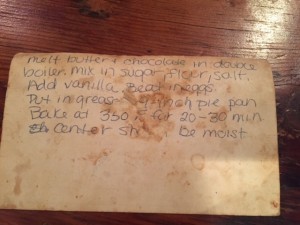 melt butter + chocolate in double
boiler. mix in sugar, flour, salt.
Add vanilla. Beat in eggs.
Put in greas 9-inch pie pan
Bake at 350 F for 20-30 min.
center sh be moist.